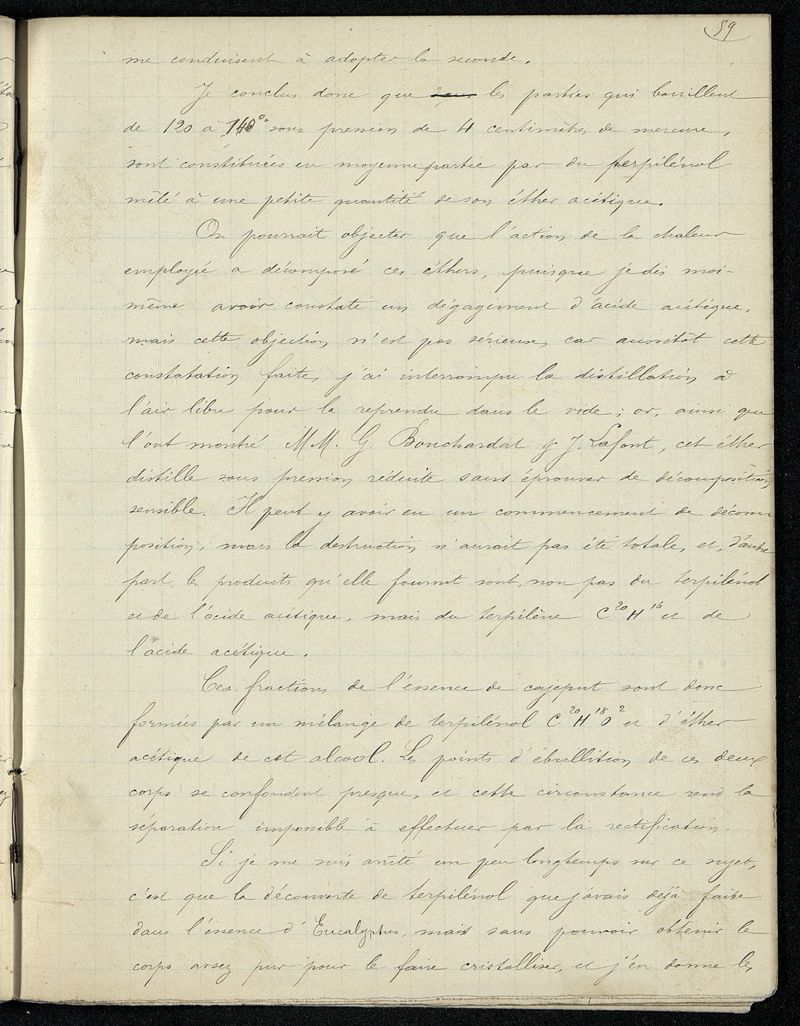 59
me conduisent à adopter la seconde.
Je conclus donc que les parties qui bouillent
de 120 à 140° sous pression de 4 centimètres de mercure,
sont constituées en moyenne partie par du terpilénol
mêlé à une petite quantité de son éther acétique.
On pourrait objecter que l'action de la chaleur
employée a décomposé ces éthers, puisque je dis moi-
même avoir constaté un dégagement d'acide acétique,
mais cette objection n'est pas sérieuse, car aussitôt cette
constatation faite, j'ai interrompu la distillation à
l'air libre pour la reprendre dans le vide ; or, ainsi que
l'ont montré MM. G Bouchardat & J. Lafont, cet éther
distille sous pression réduite sans éprouver de décomposition
sensible. Il peut y avoir eu un commencement de décom
position, mais la destruction n'aurait pas été totale, et, d'autre
part, les produits qu'elle fournit sont, non pas du terpilénol
et de l'acide acétique, mais du terpilène C²⁰H¹⁶ et de
l'acide acétique.
Ces fractions de l'essence de cajeput sont donc
formées par un mélange de terpilénol C²⁰H¹⁸O² et d'éther
acétique de cet alcool. Les points d'ébullition de ces deux
corps se confondent presque, et cette circonstance rend la
séparation impossible à effectuer par la rectification.
Si je me suis arrêté un peu longtemps sur ce sujet,
c'est que la découverte de terpilénol que j'avais déjà faite
dans l'essence d'Eucalyptus, mais sans pouvoir obtenir le
corps assez pur pour le faire cristalliser, et j'en donne les